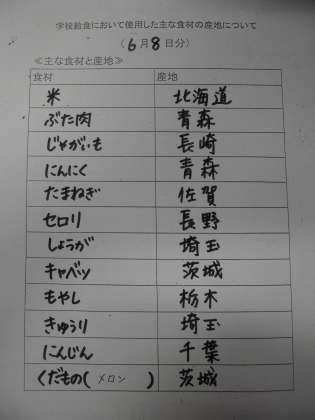 学校給食において使用した主な食材の産地について
(6月8日分)
≪主な食材と産地≫
食材 産地
米 北海道
ぶた肉 青森
じゃがいも 長崎
にんにく 青森
たまねぎ 佐賀
セロリ 長野
しょうが 埼玉
キャベツ 茨城
もやし 栃木
きゅうり 埼玉
にんじん 千葉
くだもの(メロン) 茨城